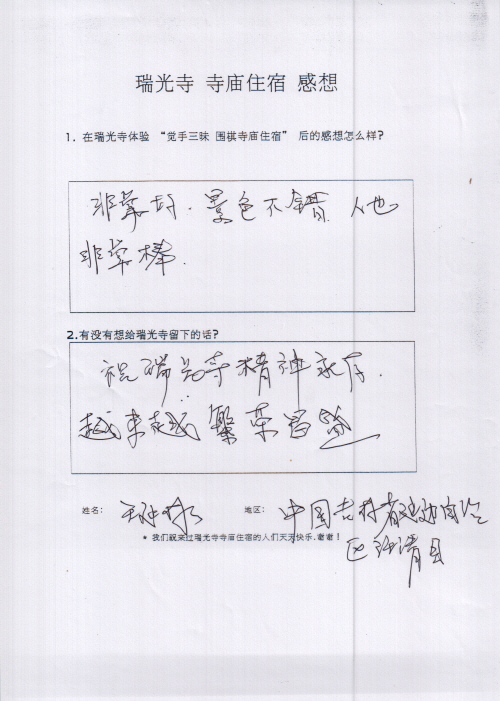 瑞光寺 寺庙住宿 感想
1. 在瑞光寺体验 “觉手三昧 围棋寺庙住宿” 后的感想怎么样?
非常好. 景色不错. 人也
非常棒.
2.有没有想给瑞光寺留下的话?
祝瑞光寺精神永存.
越来越繁荣昌盛
姓名: 地区: 中国吉林省延边自治
区汪清县
* 我们祝来过瑞光寺寺庙住宿的人们天天快乐.谢谢!